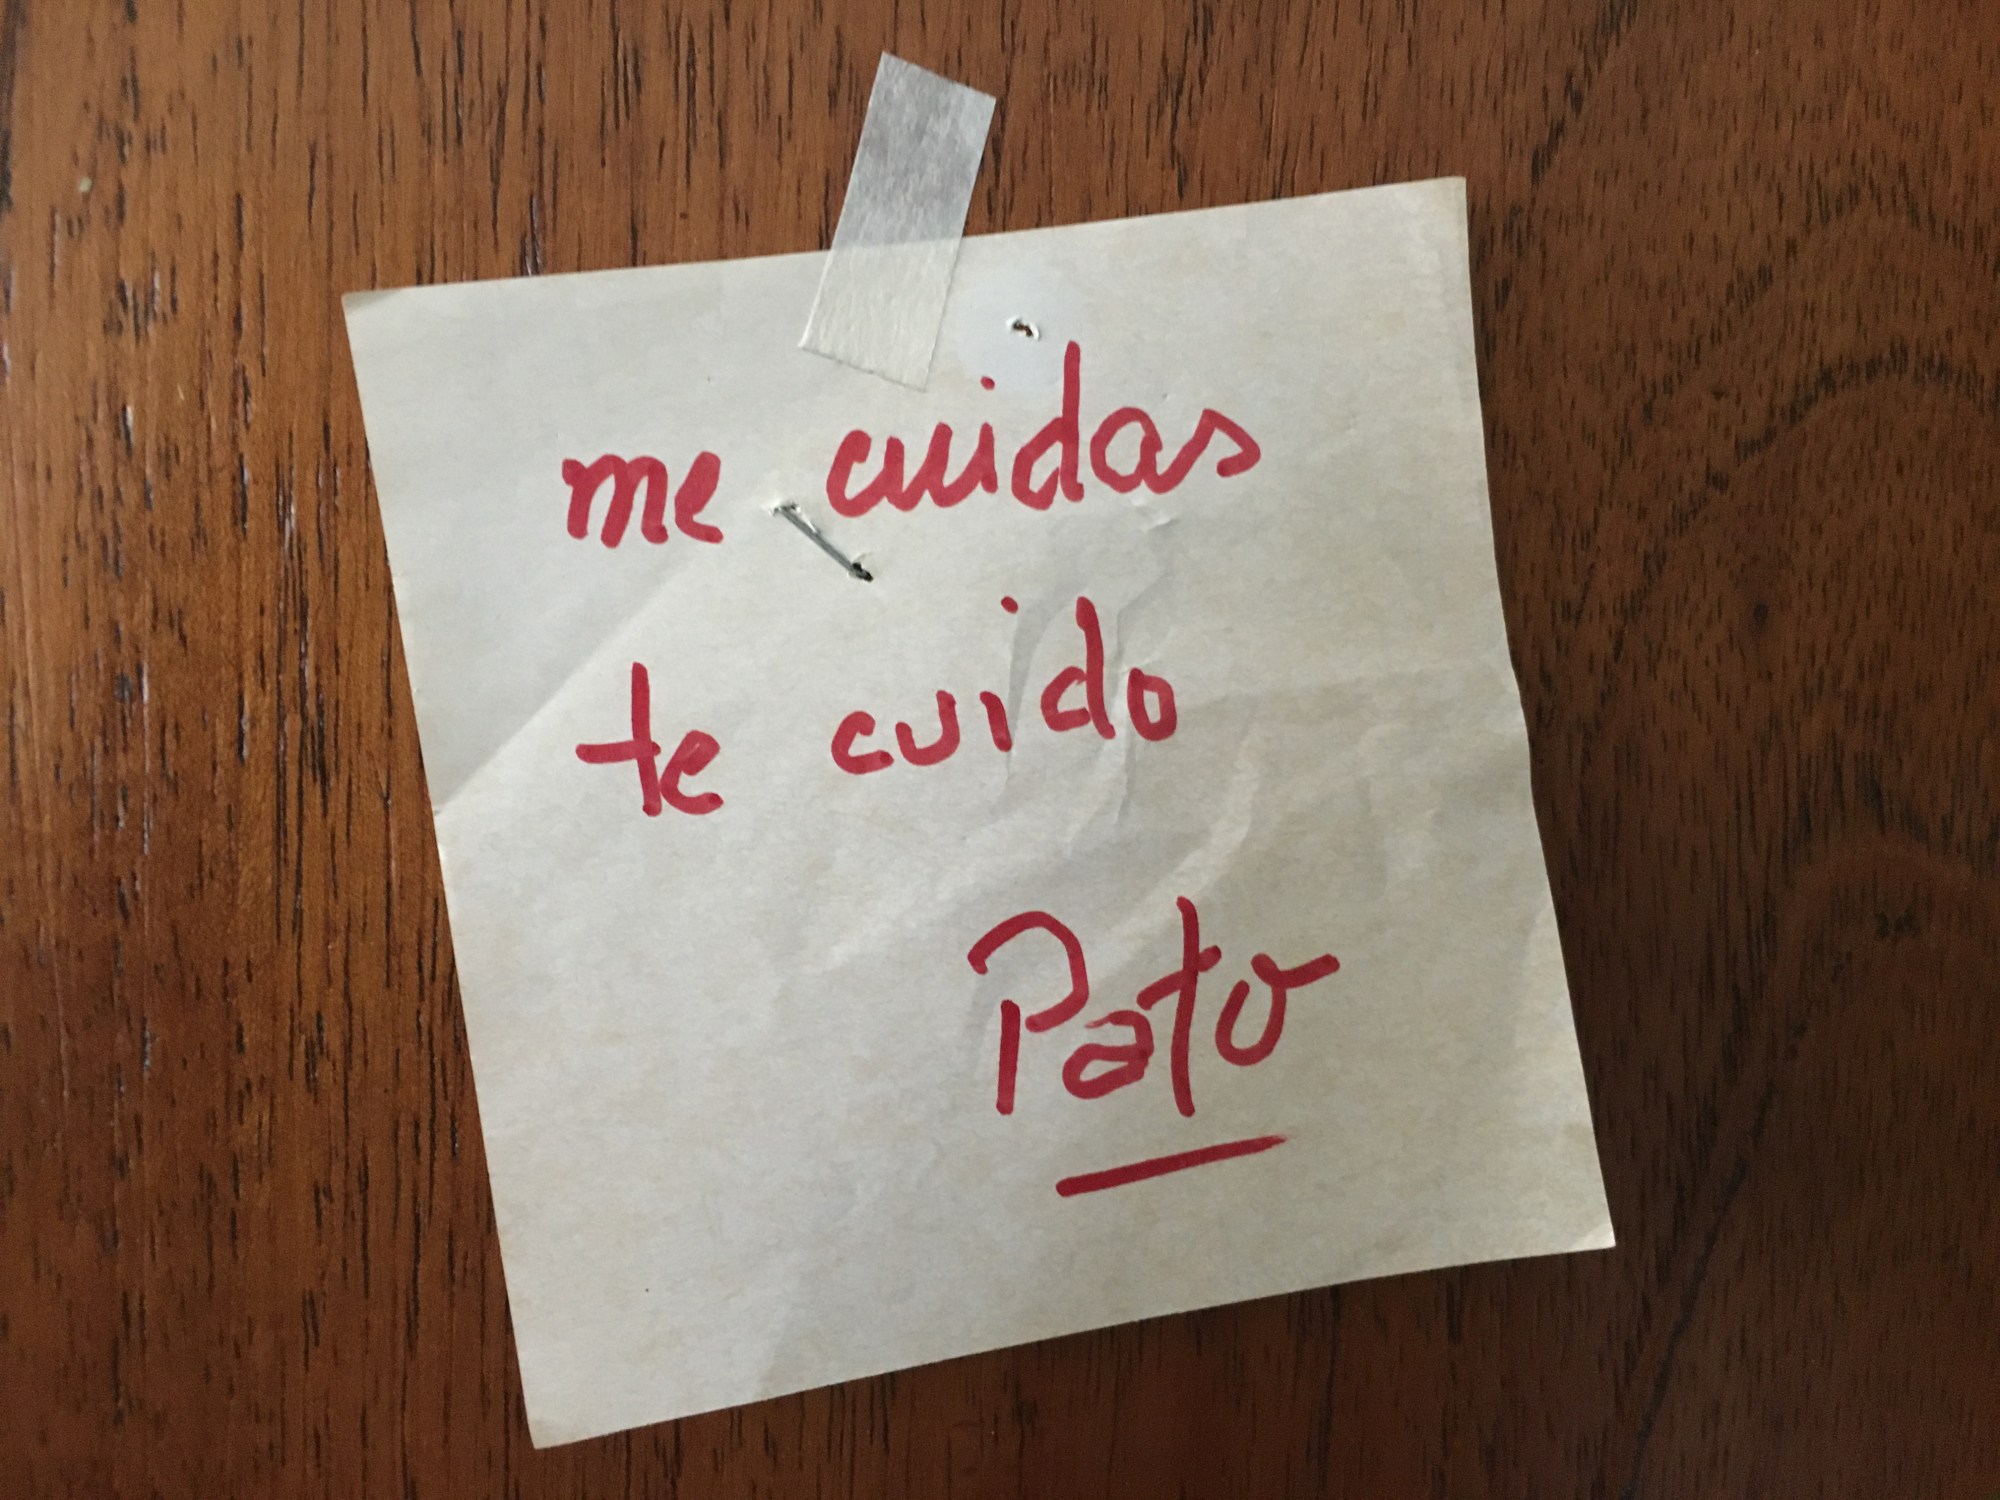 me cuidas
te cuido
Pato